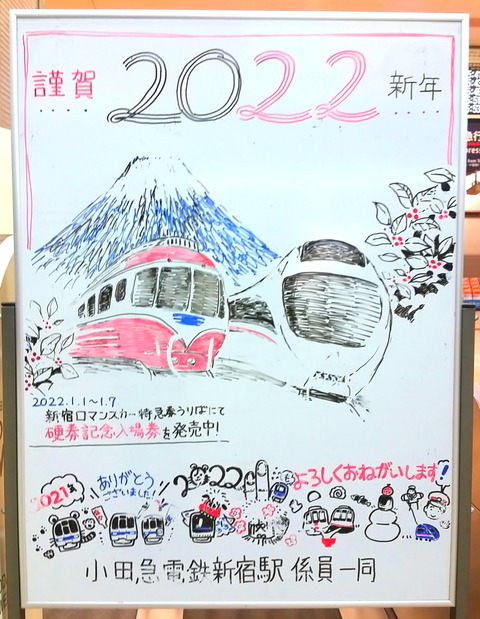 謹賀 2022 新年
2022.1.1～1.7
新宿ロマンスカー特急券うりばにて
硬券記念入場券を発売中!
2021は
ありがとう
ございました!
2022も
よろしくおねがいします!
小田急電鉄新宿駅 係員一同